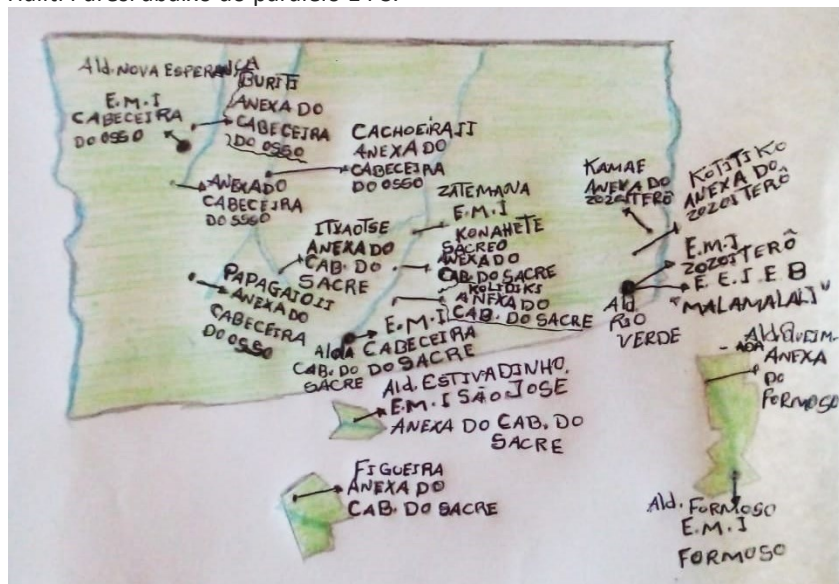 Ald. NOVA ESPERANÇA
E.M.I
CABECEIRA
DO OSSO
BURITI
ANEXA DO
CABECEIRA
DO OSSO
CACHOEIRA II
ANEXA DO
CABECEIRA
DO OSSO
ANEXA DO
CABECEIRA
DO OSSO
ITXAOTSE
ANEXA DO
CAB. DO
SACRE
ZATEMANA
E.M.I
KONAHETE
SACREO
ANEXA DO
CAB. DO SACRE
KOLIDIKI
ANEXA DO
CAB. DO SACRE
PAPAGAIO II
ANEXA DO
CABECEIRA
DO OSSO
E.M.I
CABECEIRA
DO SACRE
Alda
CAB. DO
SACRE
KAMAE
ANEXA DO
ZOZOITERÔ
KOTITIKO
ANEXA DO
ZOZOITERÔ
E.M.I
ZOZOITERÔ
E.E.I.E B
"MALAMALALI"
Ald.
RIO
VERDE
Ald. ESTIVADINHO.
E.M.I SÃO JOSE
ANEXA DO CAB. DO
SACRE
FIGUEIRA
ANEXA DO
CAB. DO SACRE
ANEXA
DO
FORMOSO
Ald. FORMOSO
E.M.I
FORMOSO